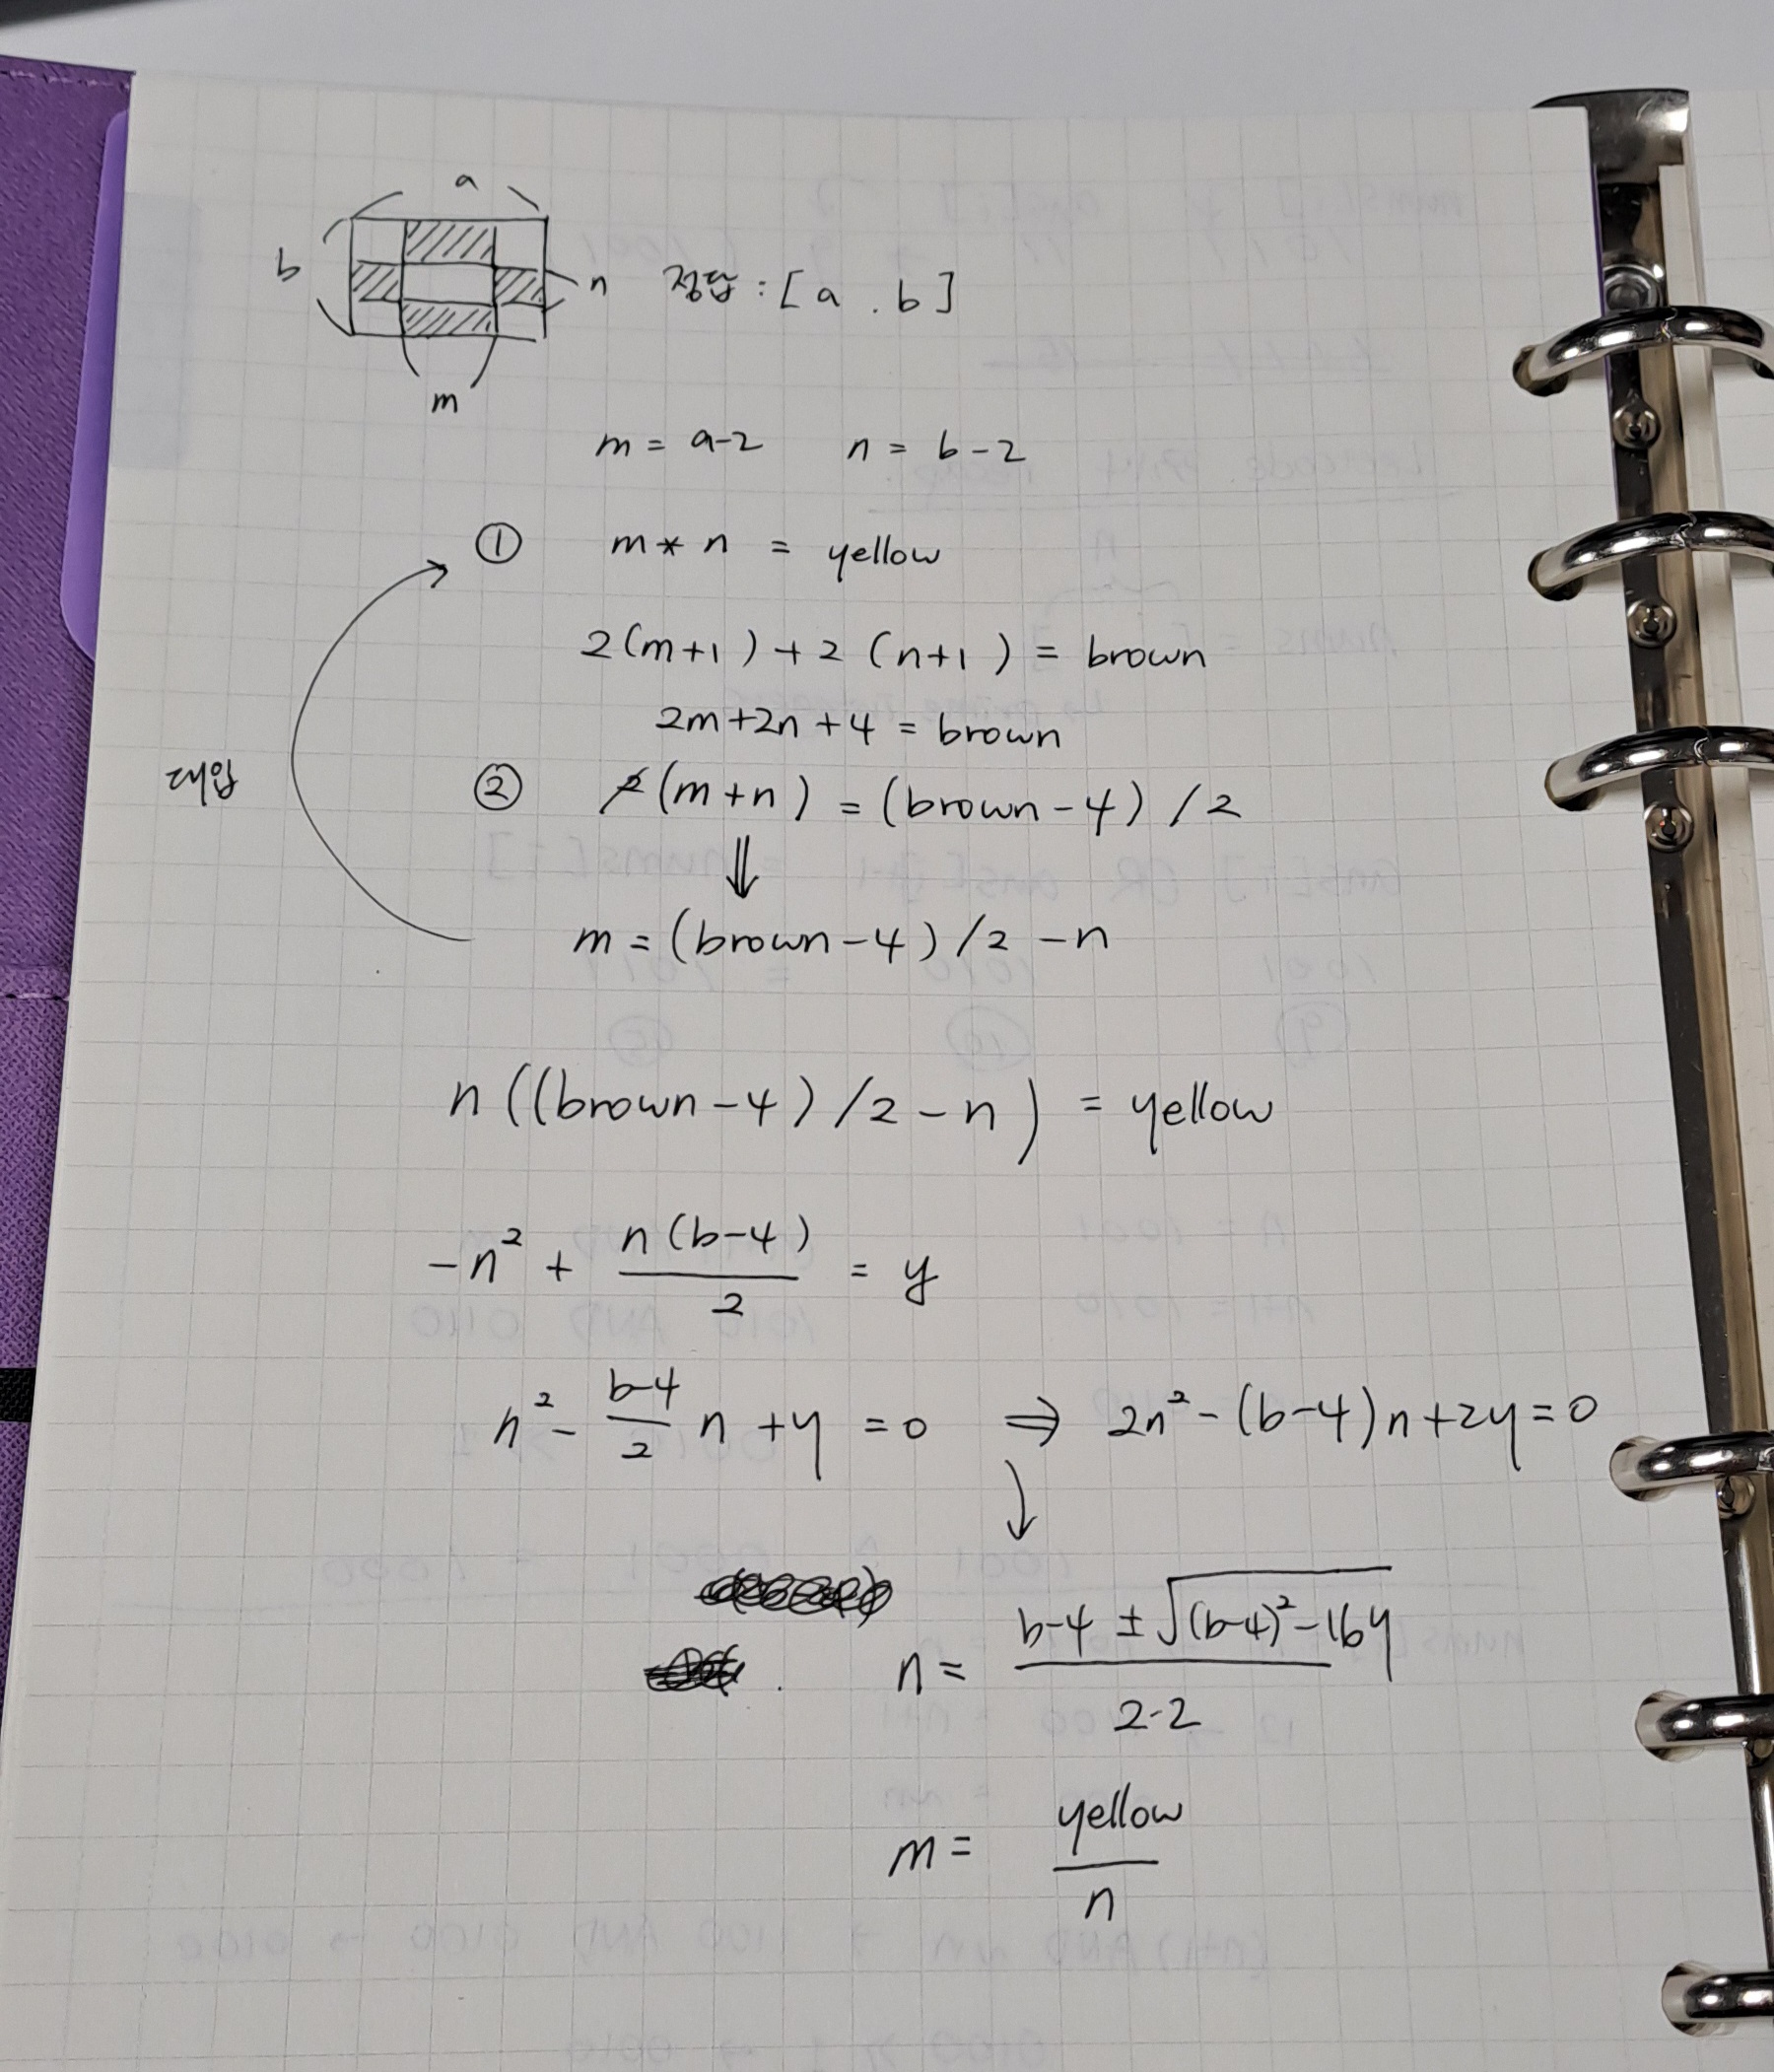 a
b
n 정답 : [ a . b ]
m
m = a-2 n = b-2
① m * n = yellow
2(m+1) + 2(n+1) = brown
2m+2n+4 = brown
대입
② 2(m+n) = (brown-4)/2
⇓
m = (brown-4)/2 - n
n((brown-4)/2 - n) = yellow
-n² + n(b-4)/2 = y
n² - b-4/2 n + y = 0 ⇒ 2n² - (b-4)n + 2y = 0
n = b-4 ± √(b-4)² - 16y / 2·2
m = yellow / n